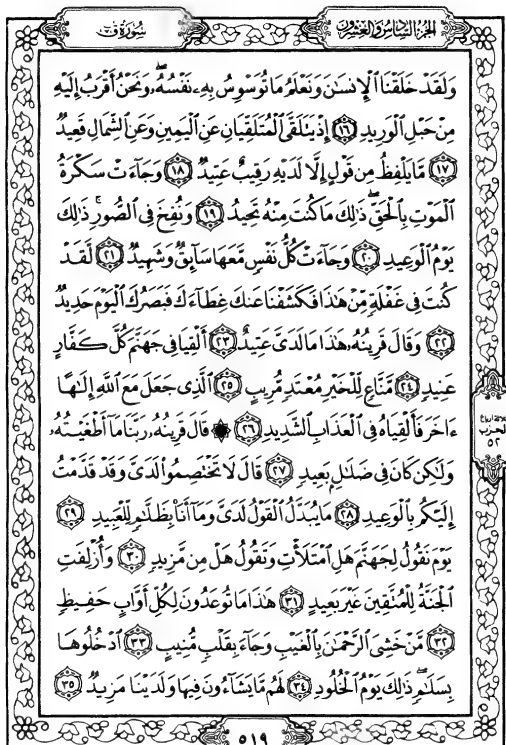 الجزء السادس والعشرون
سورة ق
وَلَقَدْ خَلَقْنَا ٱلْإِنسَٰنَ وَنَعْلَمُ مَا تُوَسْوِسُ بِهِۦ نَفْسُهُۥۖ وَنَحْنُ أَقْرَبُ إِلَيْهِ
مِنْ حَبْلِ ٱلْوَرِيدِ ١٦ إِذْ يَتَلَقَّى ٱلْمُتَلَقِّيَانِ عَنِ ٱلْيَمِينِ وَعَنِ ٱلشِّمَالِ قَعِيدٌ
١٧ مَّا يَلْفِظُ مِن قَوْلٍ إِلَّا لَدَيْهِ رَقِيبٌ عَتِيدٌ ١٨ وَجَآءَتْ سَكْرَةُ
ٱلْمَوْتِ بِٱلْحَقِّۖ ذَٰلِكَ مَا كُنتَ مِنْهُ تَحِيدُ ١٩ وَنُفِخَ فِى ٱلصُّورِۚ ذَٰلِكَ
يَوْمُ ٱلْوَعِيدِ ٢٠ وَجَآءَتْ كُلُّ نَفْسٍ مَّعَهَا سَآئِقٌ وَشَهِيدٌ ٢١ لَّقَدْ
كُنتَ فِى غَفْلَةٍ مِّنْ هَٰذَا فَكَشَفْنَا عَنكَ غِطَآءَكَ فَبَصَرُكَ ٱلْيَوْمَ حَدِيدٌ
٢٢ وَقَالَ قَرِينُهُۥ هَٰذَا مَا لَدَىَّ عَتِيدٌ ٢٣ أَلْقِيَا فِى جَهَنَّمَ كُلَّ كَفَّارٍ
عَنِيدٍ ٢٤ مَّنَّاعٍ لِّلْخَيْرِ مُعْتَدٍ مُّرِيبٍ ٢٥ ٱلَّذِى جَعَلَ مَعَ ٱللَّهِ إِلَٰهًا
ءَاخَرَ فَأَلْقِيَاهُ فِى ٱلْعَذَابِ ٱلشَّدِيدِ ٢٦ ۞ قَالَ قَرِينُهُۥ رَبَّنَا مَآ أَطْغَيْتُهُۥ
وَلَٰكِن كَانَ فِى ضَلَٰلٍۭ بَعِيدٍ ٢٧ قَالَ لَا تَخْتَصِمُوا۟ لَدَىَّ وَقَدْ قَدَّمْتُ
إِلَيْكُم بِٱلْوَعِيدِ ٢٨ مَا يُبَدَّلُ ٱلْقَوْلُ لَدَىَّ وَمَآ أَنَا۠ بِظَلَّٰمٍ لِّلْعَبِيدِ ٢٩
يَوْمَ نَقُولُ لِجَهَنَّمَ هَلِ ٱمْتَلَأْتِ وَتَقُولُ هَلْ مِن مَّزِيدٍ ٣٠ وَأُزْلِفَتِ
ٱلْجَنَّةُ لِلْمُتَّقِينَ غَيْرَ بَعِيدٍ ٣١ هَٰذَا مَا تُوعَدُونَ لِكُلِّ أَوَّابٍ حَفِيظٍ
٣٢ مَّنْ خَشِىَ ٱلرَّحْمَٰنَ بِٱلْغَيْبِ وَجَآءَ بِقَلْبٍ مُّنِيبٍ ٣٣ ٱدْخُلُوهَا
بِسَلَٰمٍۖ ذَٰلِكَ يَوْمُ ٱلْخُلُودِ ٣٤ لَهُم مَّا يَشَآءُونَ فِيهَا وَلَدَيْنَا مَزِيدٌ ٣٥
الحزب
٥٢
٥١٩